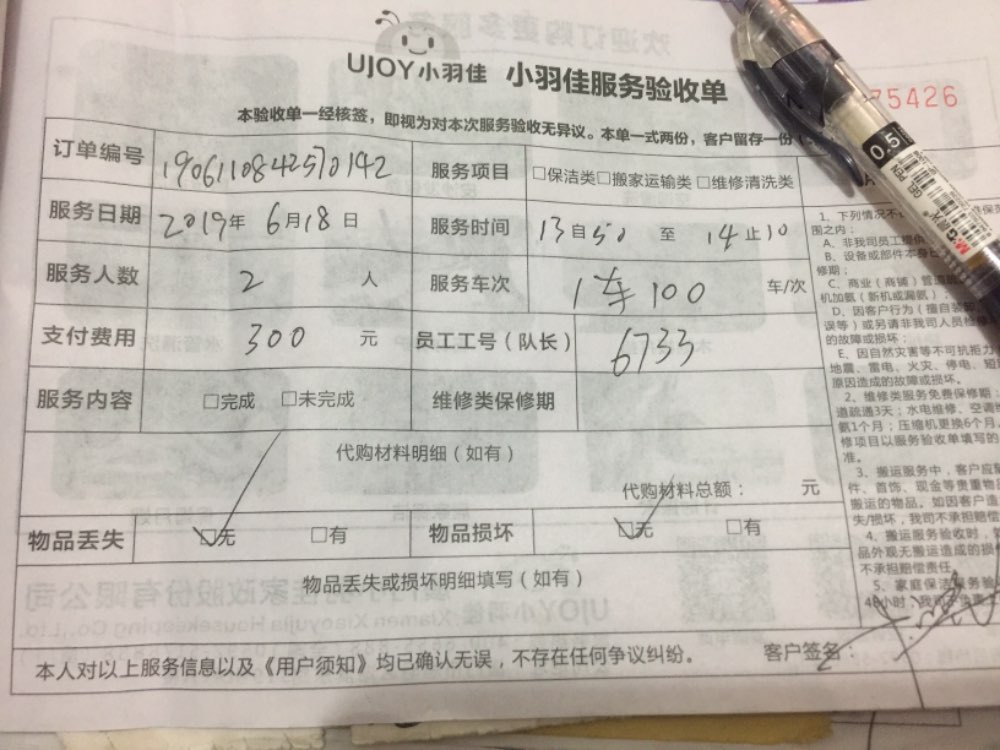 UJOY小羽佳 小羽佳服务验收单
75426
本验收单一经核签，即视为对本次服务验收无异议。本单一式两份，客户留存一份
订单编号 1906110842570142 服务项目 □保洁类□搬家运输类□维修清洗类
服务日期 2019年 6月18日 服务时间 13自50 至 14止10
服务人数 2 人 服务车次 1车100 车/次
支付费用 300 元 员工工号（队长） 6733
服务内容 □完成 □未完成 维修类保修期
代购材料明细（如有）
代购材料总额： 元
物品丢失 ☑无 □有 物品损坏 ☑无 □有
物品丢失或损坏明细填写（如有）
本人对以上服务信息以及《用户须知》均已确认无误，不存在任何争议纠纷。 客户签名：
1、下列情况不
围之内：
A、非我司员工提供
B、设备或部件本身已
修期；
C、商业（商铺）管
机加氨（新机或漏氨）；
D、因客户行为（擅自装卸
误等）或另请非我司人员检修
的故障或损坏；
E、因自然灾害等不可抗拒力
地震、雷电、火灾、停电、短
原因造成的故障或损坏。
2、维修类服务免费保修期：
道疏通3天；水电维修、空调
氨1个月；压缩机更换6个月
修项目以服务验收单填写的
准。
3、搬运服务中，客户应
件、首饰、现金等贵重物
搬运的物品。如因客户造
失/损坏，我司不承担赔偿
4、搬运服务验收时，
品外观无搬运造成的损
不承担赔偿责任。
5、家庭保洁服务验
48小时，我司不负责
0.5
GEL PEN
M&G晨光